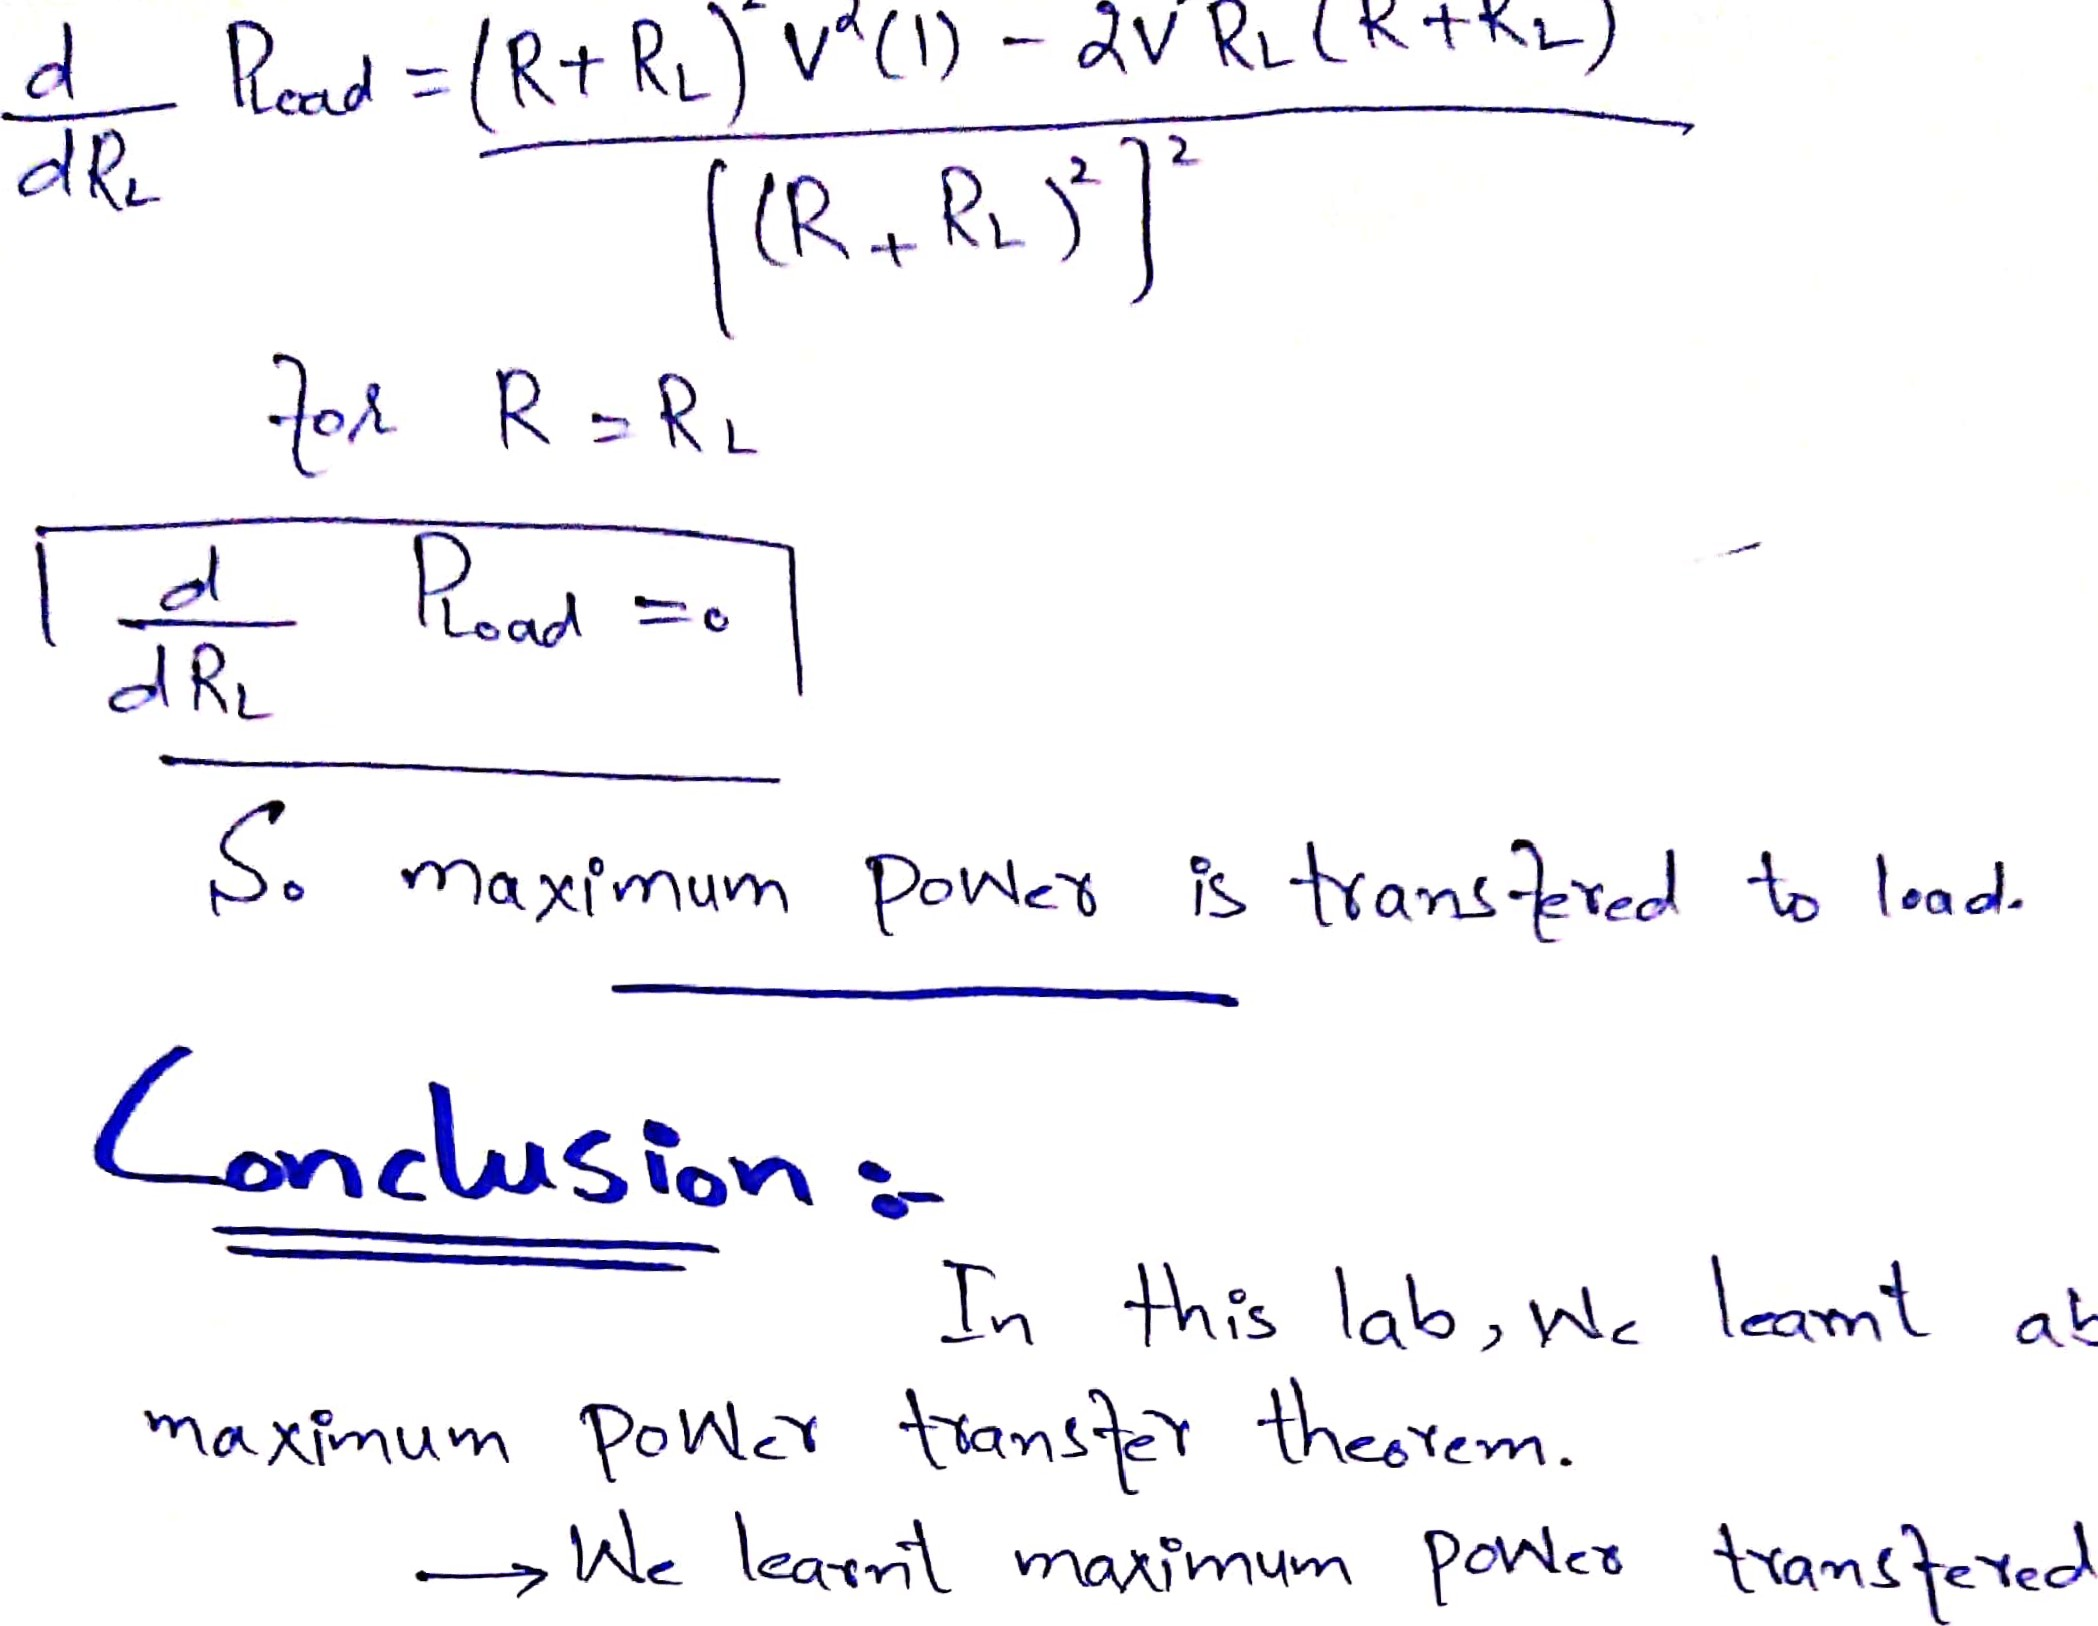 d/dRL PLoad = (R+RL)² V²(1) - 2V²RL(R+RL)
[(R+RL)²]²
for R=RL
d/dRL PLoad =0
So maximum power is transfered to load.
Conclusion :-
In this lab, We learnt ab
maximum power transfer theorem.
→ We learnt maximum power transfered